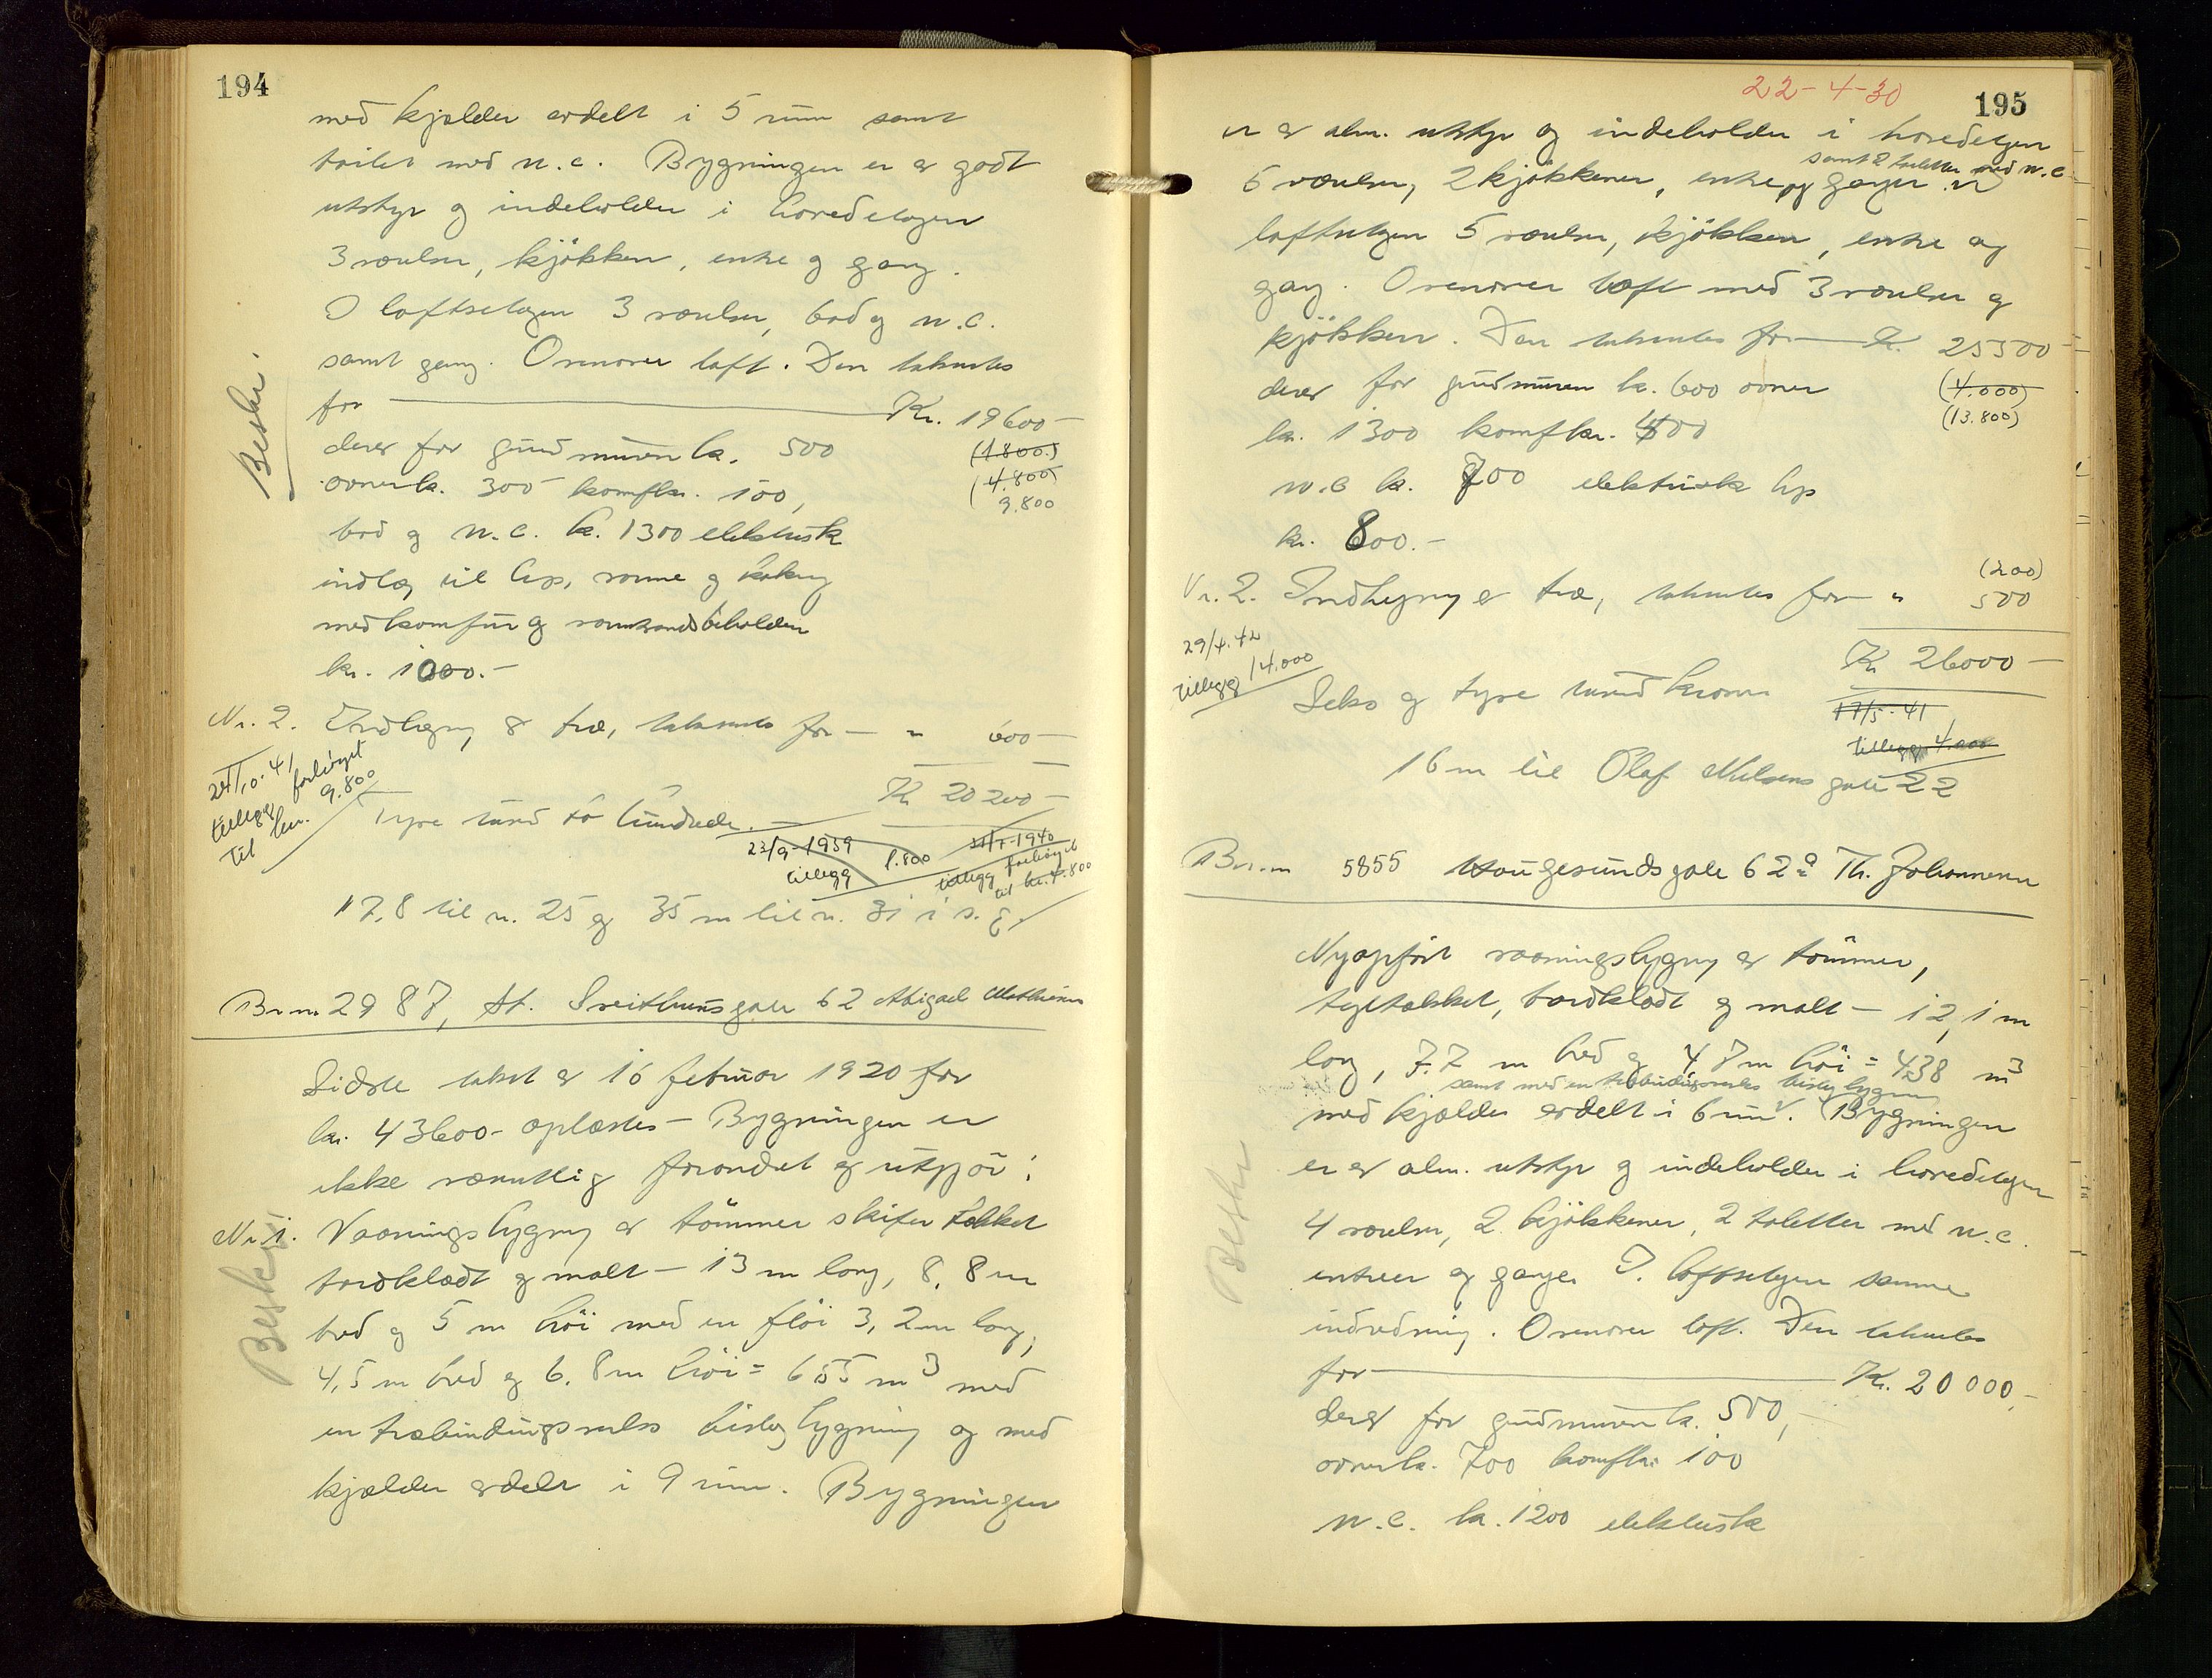 194
med kjælder avdelt i 5 rum samt
toilet med w.c. Bygningen er av godt
utstyr og indeholder i hovedetagen
3 værelser, kjøkken, entre og gang.
I loftsetagen 3 værelser, bad og w.c.
samt gang. Ovenover loft. Den takseres
for — Kr. 19600 —
derav for grundmuren kr. 500
(1.800)
ovner kr. 300 komfkr. 100,
(4.800)
9.800
bad og w.c. kr. 1300 elektrisk
indlæg til lys, varme og kokning
med komfur og varmtvandsbeholder
kr. 1000.-
Beskr.
Nr. 2. Indhegning av træ, takseres for — " 600 —
Kr 20200 —
24/10-41
tillegg forhöyet
til kr. 9.800
Tyve tusind to hundrede. —
23/9-1939
tillegg 1.800
1940
tillegg forhöyet
til kr. 4.800
17,8 til n. 25 og 35 m til n. 31 i s. g.
Brnr. 2987, St. Sveithunsgate 62 Abigael Mathiesen
Sidste takst av 16 februar 1920 for
kr. 43600- oplæstes — Bygningen er
ikke væsentlig forandret og utgjør:
Nr 1. Vaaningsbygning av tømmer skifertækket
bordklædt og malt — 13 m lang, 8,8 m
bred og 5 m høi med en fløi 3,2 m lang,
4,5 m bred og 6,8 m høi = 655 m3 med
en træbindingsverks bislagbygning og med
kjælder avdelt i 9 rum. Bygningen
Beskr.
22-4-30
195
er av alm. utstyr og indeholder i hovedetagen
samt 2 toiletter med w.c.
6 værelser, 2 kjøkkener, entre og ganger.
loftsetagen 5 værelser, kjøkken, entre og
gang. Ovenover loft med 3 værelser og
kjøkken. Den takseres for — Kr. 25500 —
derav for grundmuren kr. 600 ovner
(4.000)
(13.800)
kr. 1300 komfkr. 400
w.c kr. 700 elektrisk lys
kr. 800.-
(200)
Nr. 2. Indhegning av træ, takseres for — " 500
29/4.42
tillegg 14.000
Kr 26000 —
Seks og tyve tusind kroner
17/5-41
tillegg 4.000
16 m til Olaf Nielsens gate 22
Brnr 5855 Haugesundsgate 62a Th. Johannesen
Nyopført vaaningsbygning av tømmer,
tegltækket, bordklædt og malt — 12,1 m
lang, 7.7 m bred og 4,7 m høi = 438 m3
samt med en træbindingsverks bislagbygning
med kjælder avdelt i 6 rum. Bygningen
er av alm. utstyr og indeholder i hovedetagen
4 værelser, 2 kjøkkener, 2 toletter med w.c.
entreer og ganger. I loftsetagen samme
indredning. Ovenover loft. Den takseres
for — Kr. 20 000,-
derav for grundmuren kr. 500,
ovner kr. 700 komfkr. 100
w.c. kr. 1200 elektrisk
Beskr